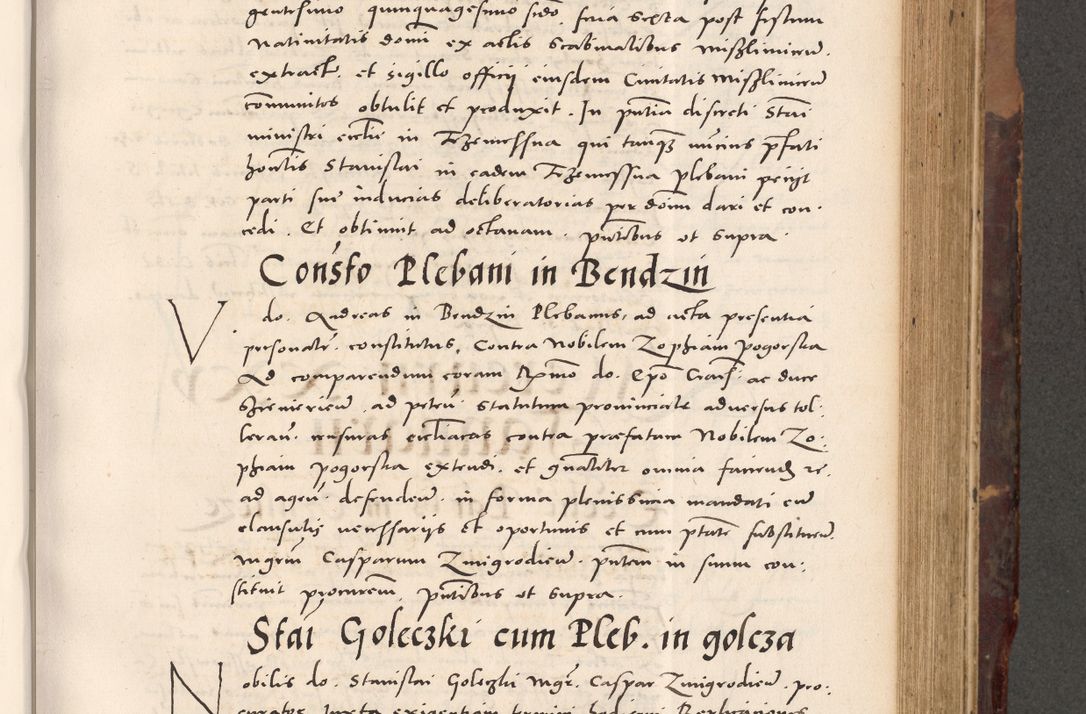 gentesimo quinquagesimo sedo, feria sexta post festum
Nativitatis domi ex actis scabinalibus Misslimicen.
extract. et sigillo officii eiusdem Civitatis Misslimicen
communites obtulit et produxit. In pntia discreti Stai
ministri ecclie in Trzemessna qui tanq nucius pfati
honlis Stanislai in eadem Trzemessna plebani petyt
parti sue inducias deliberatorias per domi dari et con-
cedi. Et obtinuit ad octavam. pntibus ut supra.
Consto Plebani in Bendzin
V do. Andreas in Bendzin Plebanus, ad acta presentia
personalr. constitutus, Contra Nobilem Zophiam Pogorska
Ad comparendum coram Rmo do. Epo Crac. ac duce
Sevierien ad peten. statutum provinciale adversus tol-
leran. censuras ecclîacas contra praefatam Nobilem Zo-
phiam pogorska extendi. et gnaliter omnia faciend re.
ad agen. defenden. in forma plenissima mandati cum
clausulis necessariis et oportunis et cum ptate substituen.
Mgrum Casparum Zmigrodien. pntem in suum con-
stituit procurem, pntibus ut supra.
Stai Goleczki cum Pleb. in golcza
Nobilis do. Stanislai Goleczki Mgr. Caspar Zmigrodien. pro-
curator Juxta exigentiam termini hodierni Replicationes